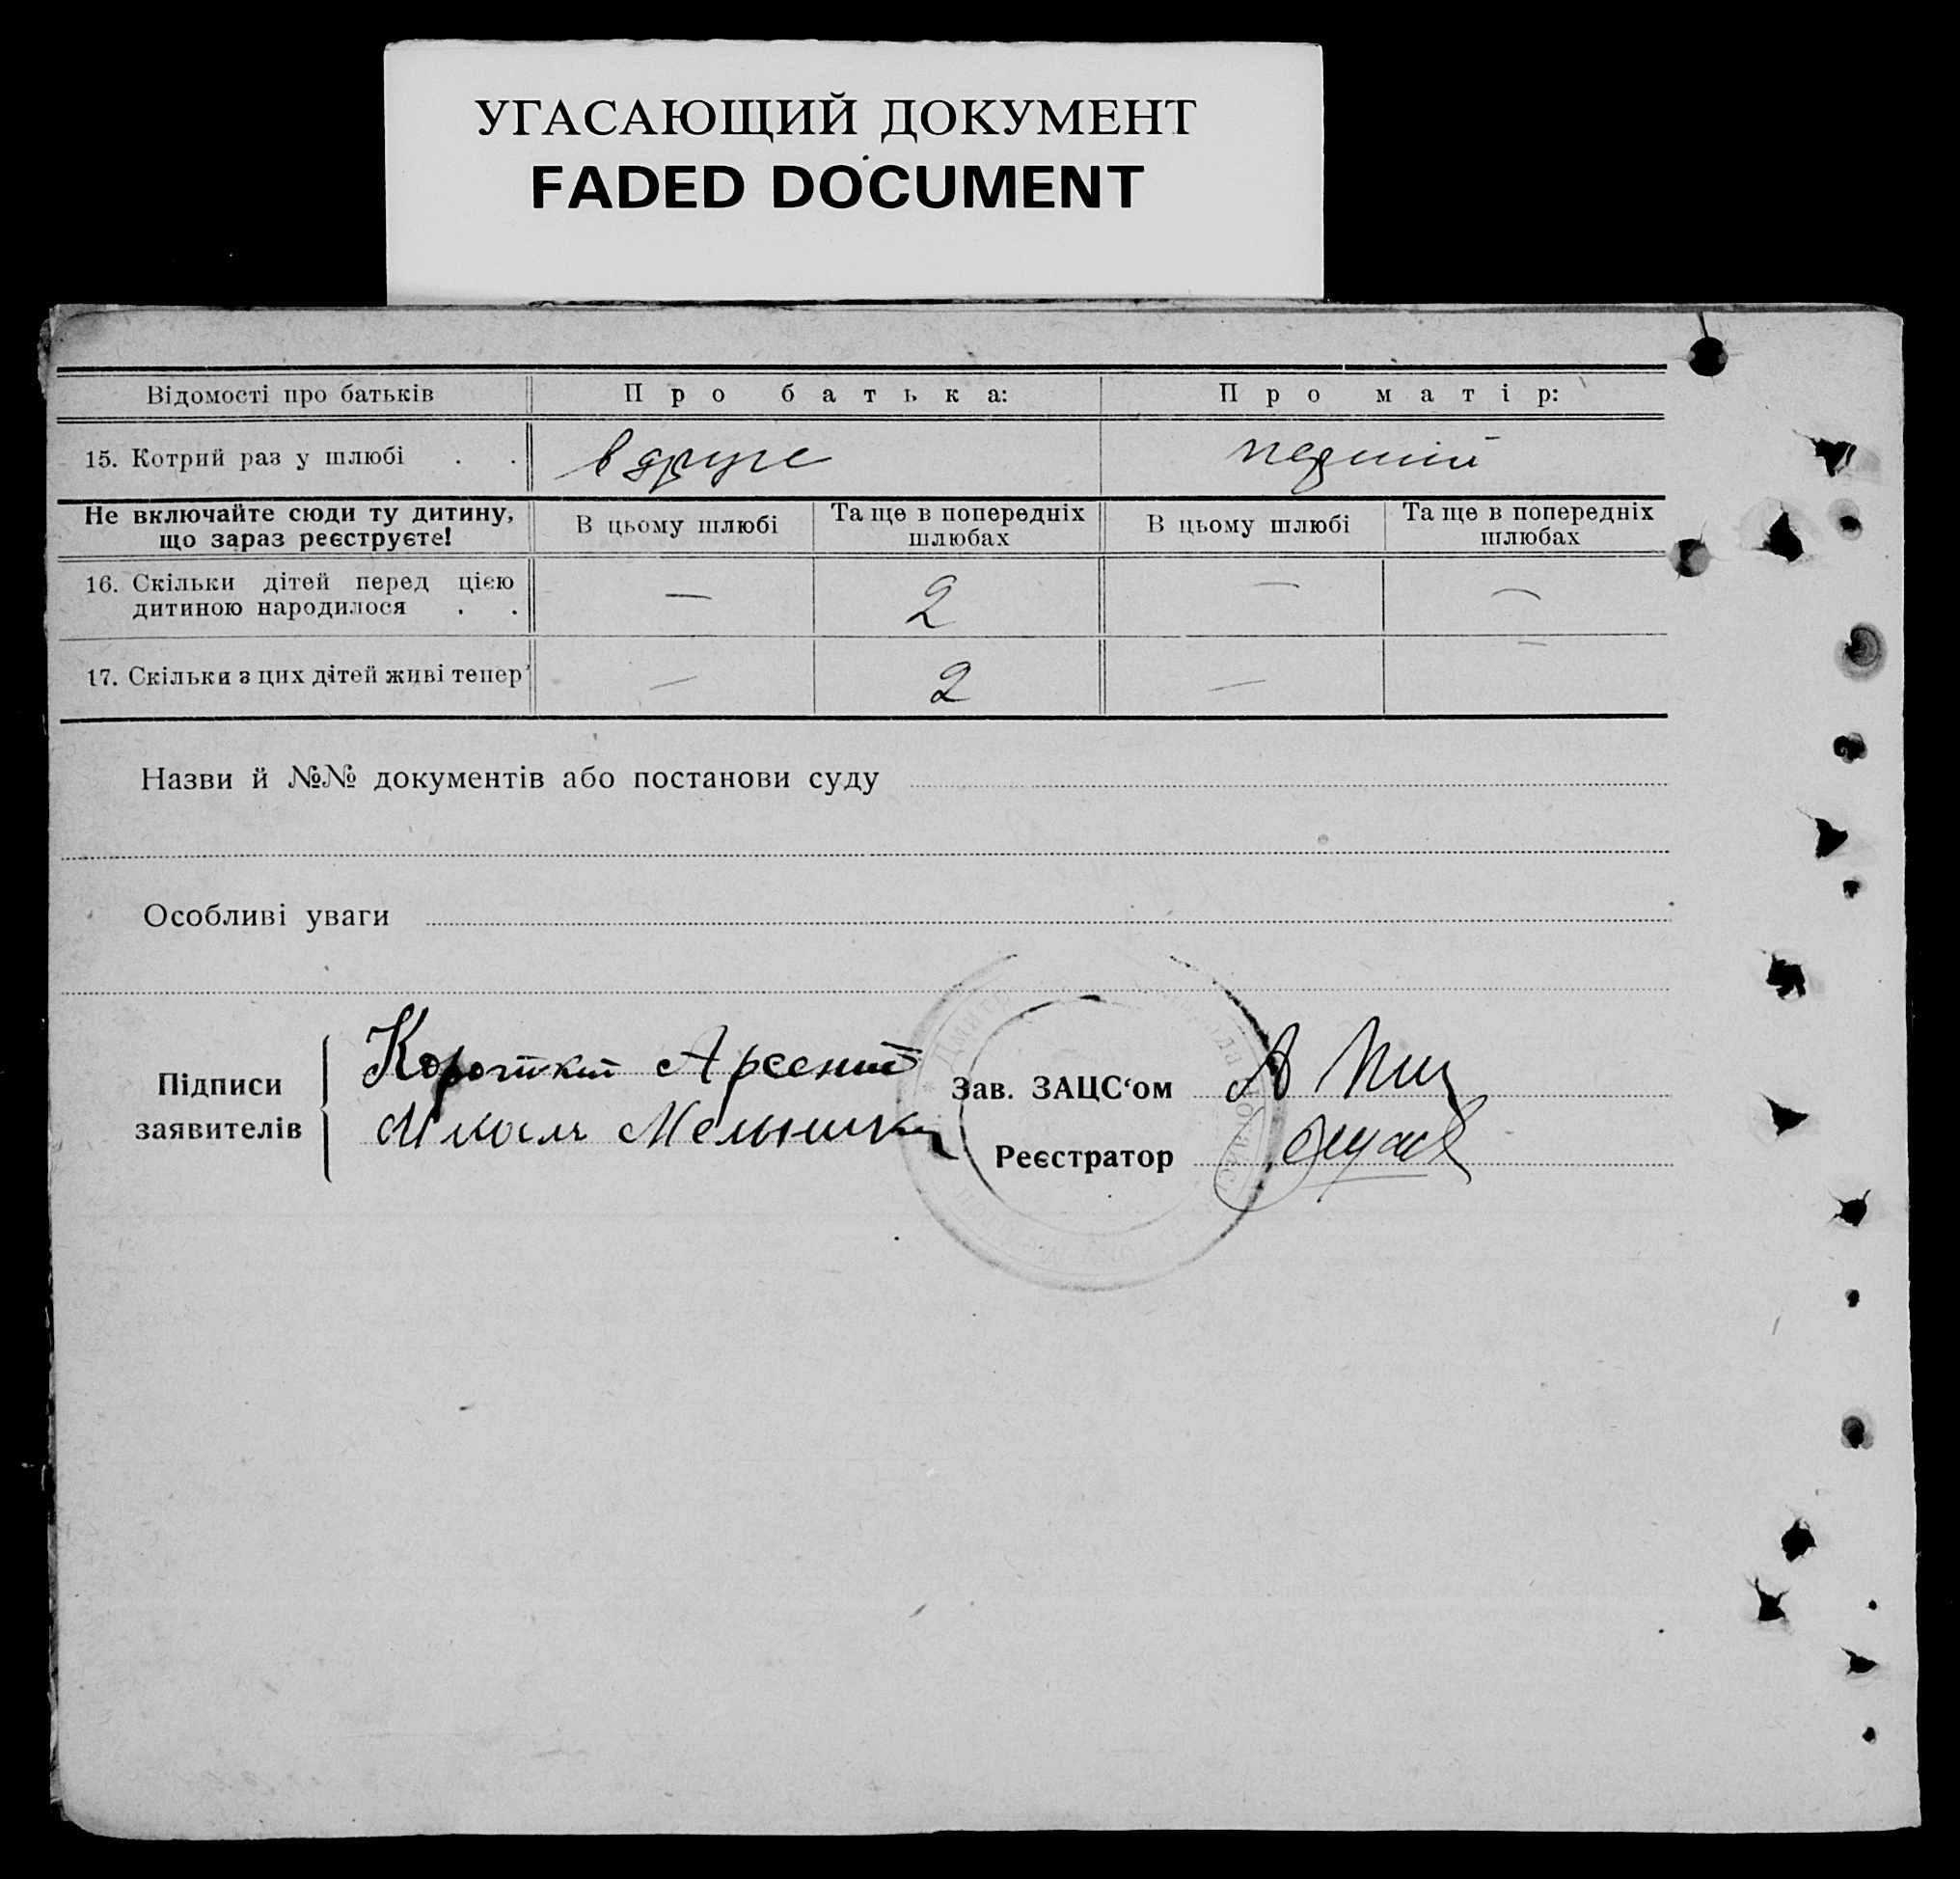 УГАСАЮЩИЙ ДОКУМЕНТ
FADED DOCUMENT
Відомості про батьків Про батька: Про матір:
15. Котрий раз у шлюбі . . вдруге перший
Не включайте сюди ту дитину, що зараз реєструєте! В цьому шлюбі Та ще в попередніх шлюбах В цьому шлюбі Та ще в попередніх шлюбах
16. Скільки дітей перед цією
дитиною народилося . . — 2 — —
17. Скільки з цих дітей живі тепер — 2 — —
Назви й №№ документів або постанови суду
Особливі уваги
Підписи заявителів
Короткий Арсений
Мельник
Зав. ЗАЦС‘ом
Реєстратор